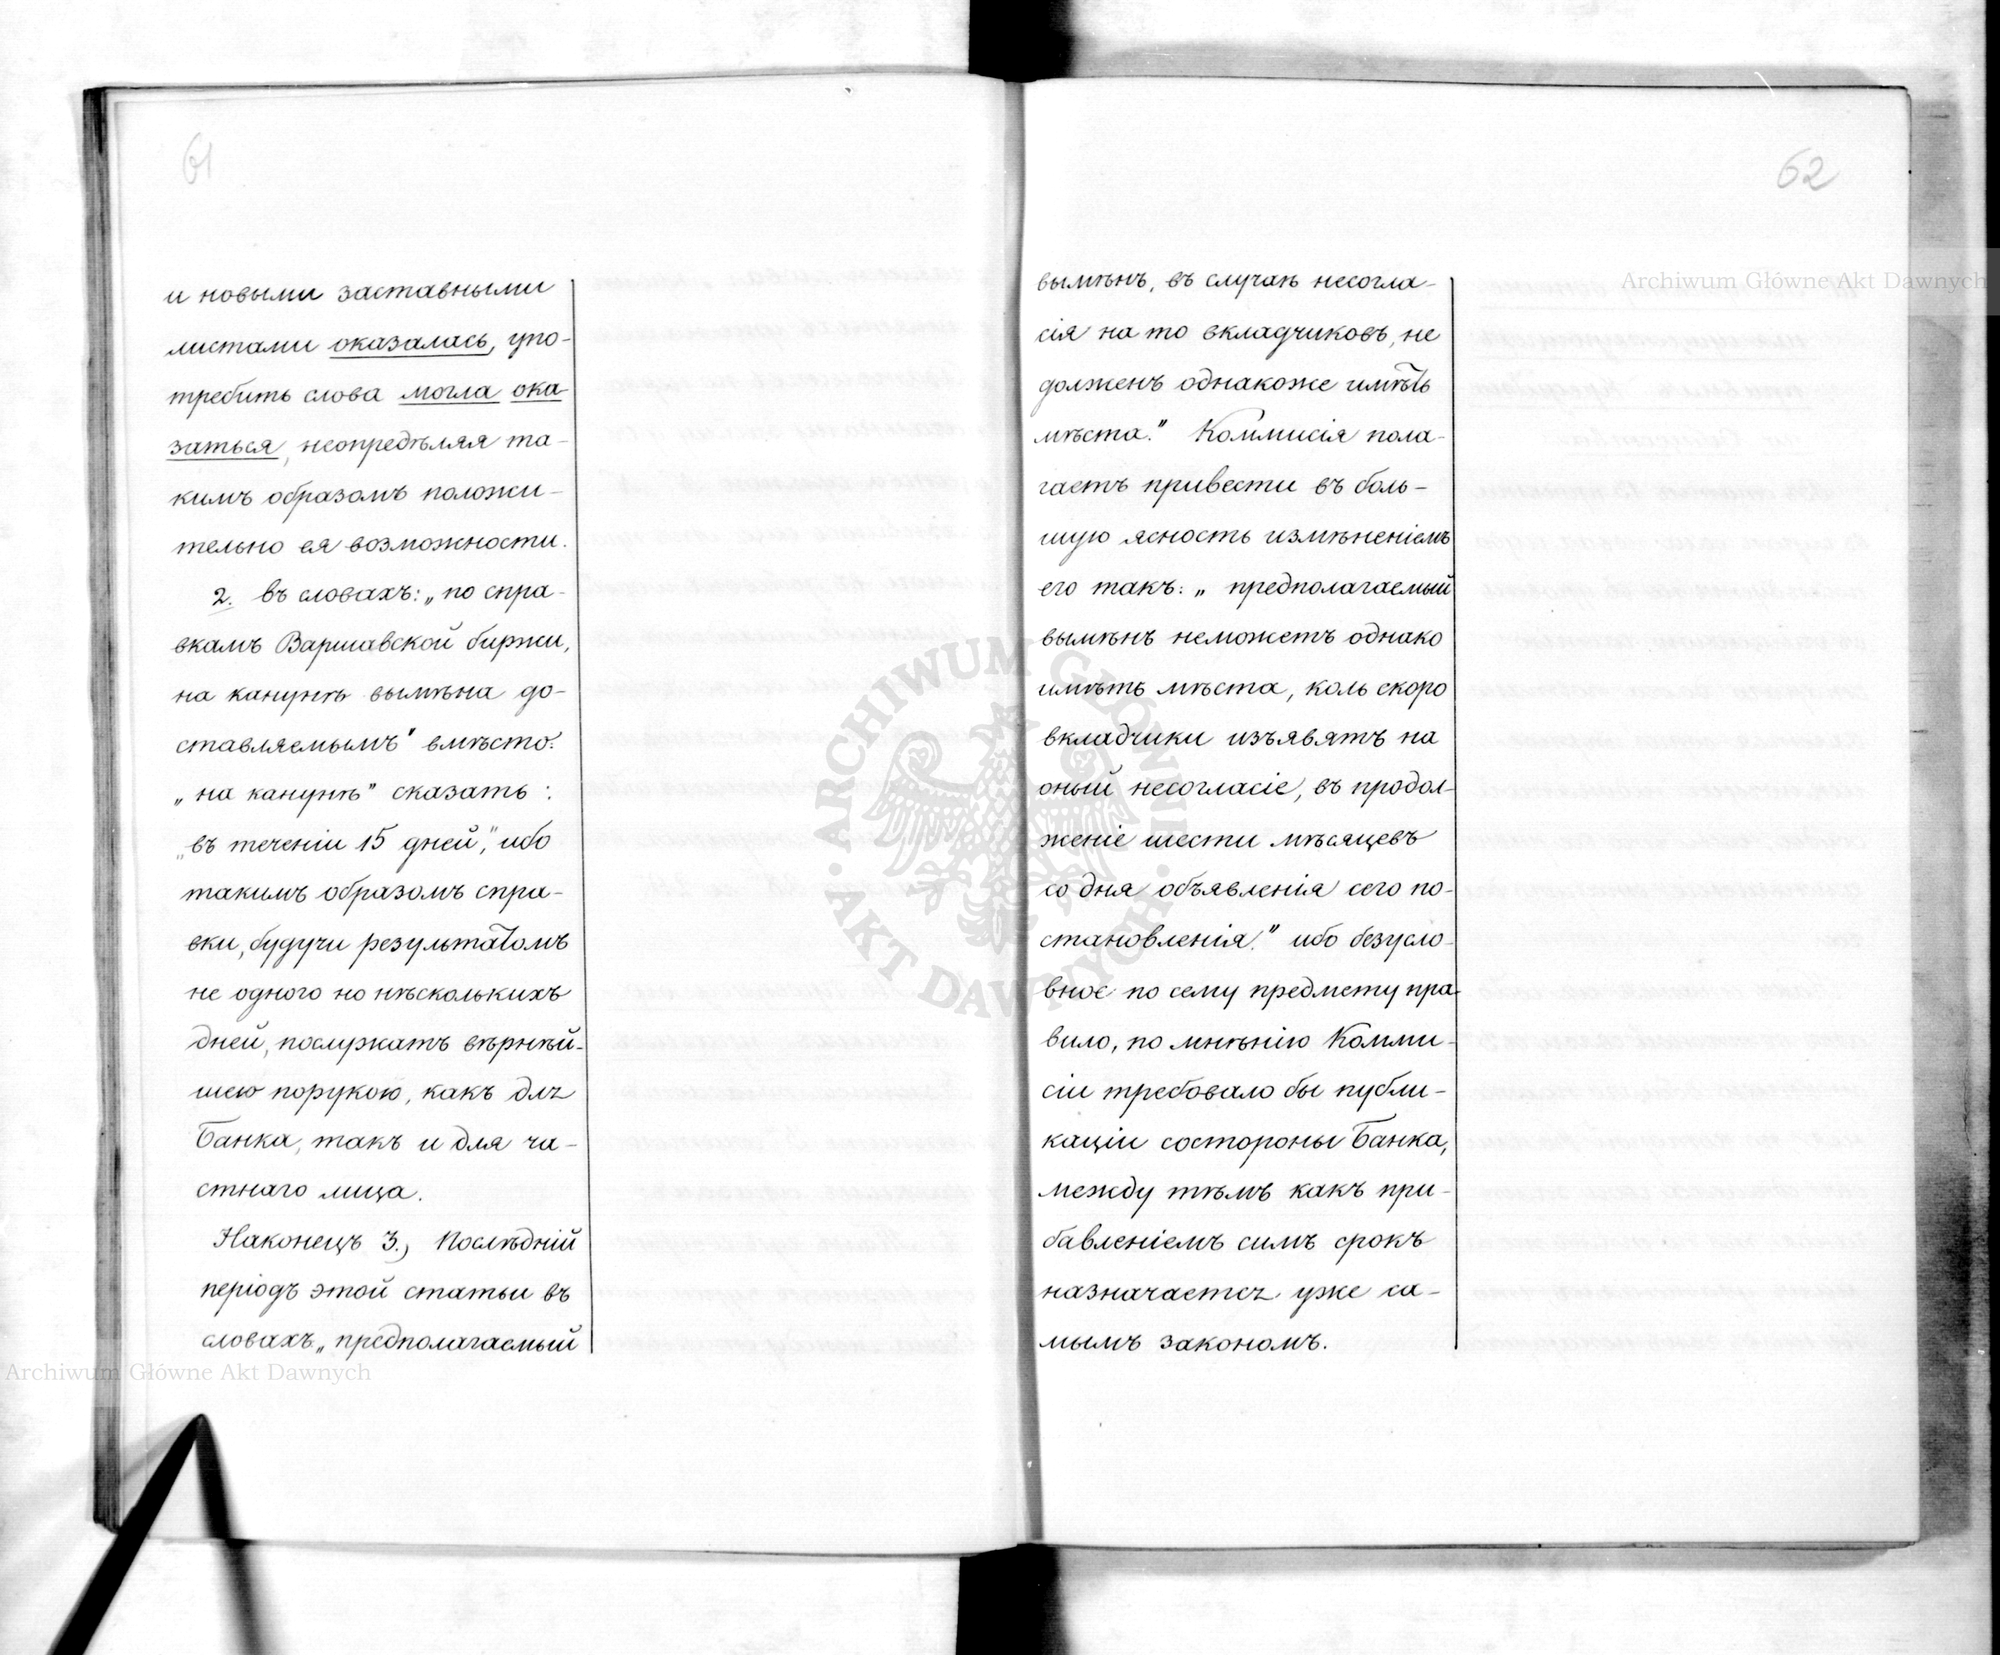 61
и новыми заставными
листами оказалась, упо-
требить слова могла ока
заться, неопредѣляя та-
кимъ образомъ положи-
тельно ея возможности.
2. въ словахъ: „по спра-
вкамъ Варшавской биржи,
на канунѣ вымѣна до-
ставляемымъ" вмѣсто:
„на канунѣ" сказать:
„въ теченіи 15 дней," ибо
такимъ образомъ спра-
вки, будучи результатомъ
не одного но нѣсколькихъ
дней, послужатъ вѣрнѣй-
шею порукою, какъ для
Банка, такъ и для ча-
стнаго лица.
Наконецъ 3., Послѣдній
періодъ этой статьи въ
словахъ „предполагаемый
62
вымѣнъ, въ случаѣ несогла-
сія на то вкладчиковъ, не
долженъ однакоже имѣть
мѣста." Коммисія пола-
гаетъ привести въ боль-
шую ясность измѣненіемъ
его такъ: „предполагаемый
вымѣнъ неможетъ однако
имѣть мѣста, коль скоро
вкладчики изъявятъ на
оный несогласіе, въ продол-
женіе шести мѣсяцевъ
со дня объявленія сего по-
становленія." ибо безусло-
вное по сему предмету пра-
вило, по мнѣнію Комми-
сіи требовало бы публи-
каціи состороны Банка,
между тѣмъ какъ при-
бавленіемъ симъ срокъ
назначается уже са-
мымъ закономъ.
Archiwum Główne Akt Dawnych
Archiwum Główne Akt Dawnych
ARCHIWUM GŁÓWNE
AKT DAWNYCH